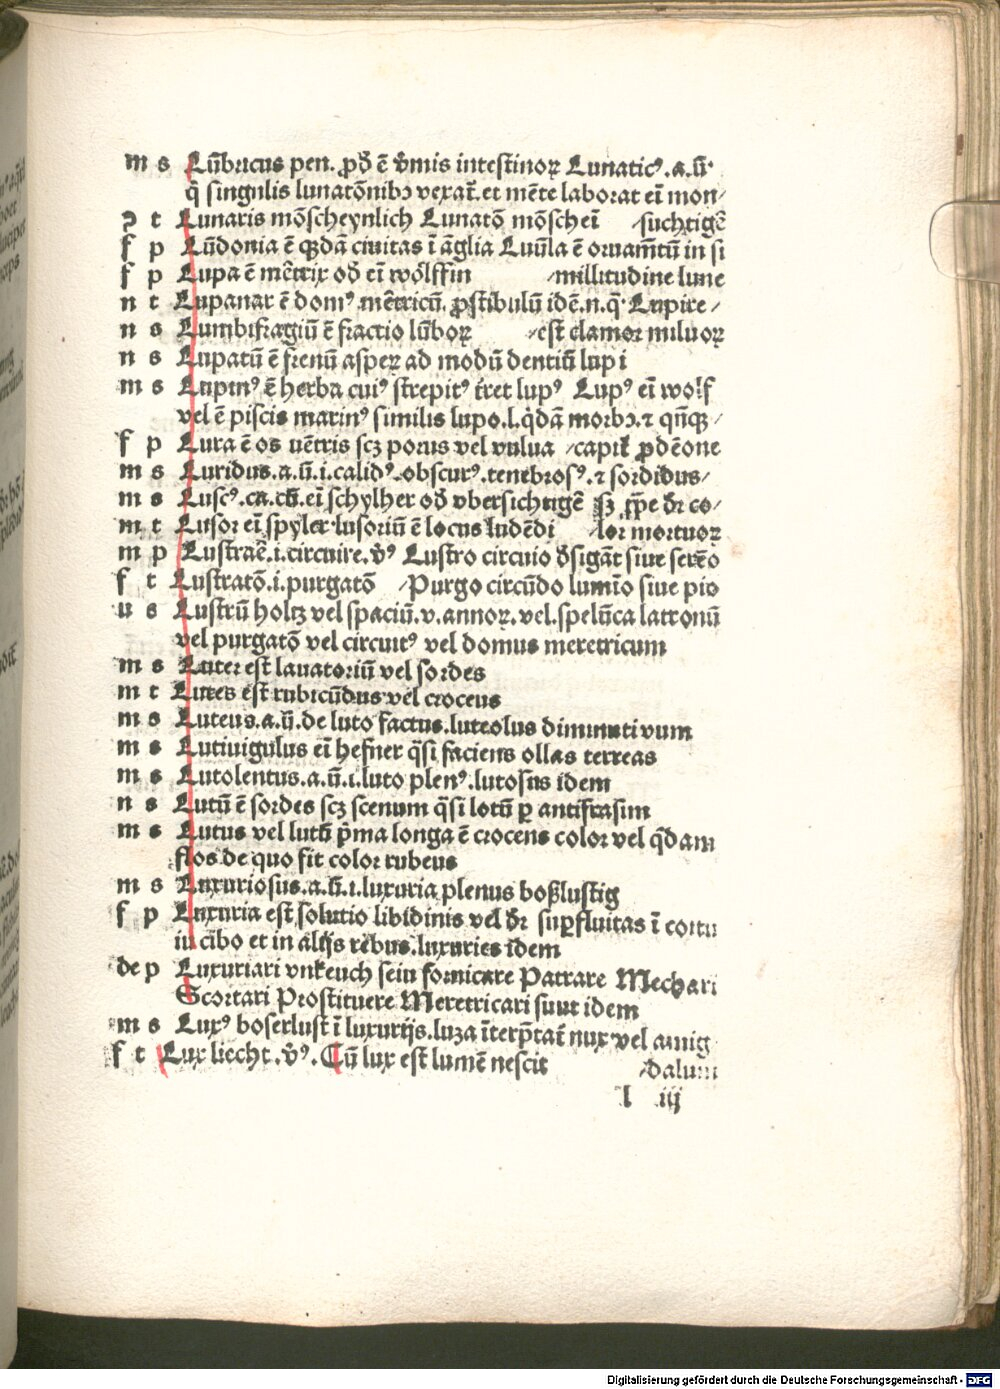 m s Lūbricus pen. ꝓd̄ ē v̄mis intestinoꝝ Lunaticꝰ.a.ū.
q̄ singulis lunatōnibꝫ vexat̄.et mēte laborat eī mon⸗
ꝯ t Lunaris mōscheynlich Lunatō mōscheī /suchtigē
f p Lūdonia ē q̄dā ciuitas ī āglia Luūla ē ornam̄tū in si
f p Lupa ē mēt̄rix od̄ eī wölffin /millitudine lune
n t Lupanar ē domꝰ mēt̄ricū. ꝓstibulū idē.n.qͣ Lupire/
n s Lumbifragiū ē fractio lūboꝝ /est clamor miluoꝝ
n s Lupatū ē frenū aspeꝝ ad modū dentiū lupi
m s Lupinꝰ ē herba cuiꝰ strepitꝰ t̄ret lupꝰ Lupꝰ eī wolf
vel ē piscis marinꝰ similis lupo.l.q̇dā morbꝰ.⁊ qn̄qꝫ/
f p Lura ē os uētris scꝫ porus vel vulua /capit̄ ꝓdēone
m s Luridus.a.ū.i.calidꝰ.obscurꝰ.tenebrosꝰ.⁊ sordidus/
m s Luscꝰ.ca.cū.eī schylher od̄ vbersichtigē sꝫ ꝓp̄e d̄r co/
m t Lusor eī spyler lusoriū ē locus ludēdi /lor mortuoꝝ
m p Lustraē.i.circuire.v̄ꝰ Lustro circuio d̄sigāt siue serēo
f t Lustratō.i.purgatō /Purgo circūdo lumīo siue pio
u s Lustrū holtz vel spaciū.v.annoꝝ.vel.spelūca latronū
vel purgatō vel circuitꝰ vel domus meretricum
m s Luter est lauatoriū vel sordes
m t Lutes est rubicūdus vel croceus
m s Luteus.a.ū.de luto factus.luteolus diminuti vum
m s Lutiuigulus eī hefner q̄si faciens ollas terreas
m s Lutolentus.a.ū.i.luto plenꝰ.lutosus idem
n s Lutū ē sordes scꝫ scenum q̄si lotū ꝑ antifrasim
m s Lutus vel lutū p̄ma longa ē croceus color vel q̄dam
flos de quo fit color rubeus
m s Luxuriosus.a.ū.i.luxuria plenus boßlustig
f p Luxuria est solutio libidinis vel d̄r suꝑfluitas ī coitu
in cibo et in alijs rebus.luxuries idem
de p Luxuriari vnkeuch sein fornicare Patrare Mechari
Scortari Prostituere Meretricari sunt idem
m s Luxꝰ boserlust ī luxurijs.luza īterp̄tat̄ nux vel amig
f t Lux liecht.v̄ꝰ.Cū lux est lumē nescit /dalum
l iij
Digitalisierung gefördert durch die Deutsche Forschungsgemeinschaft - DFG